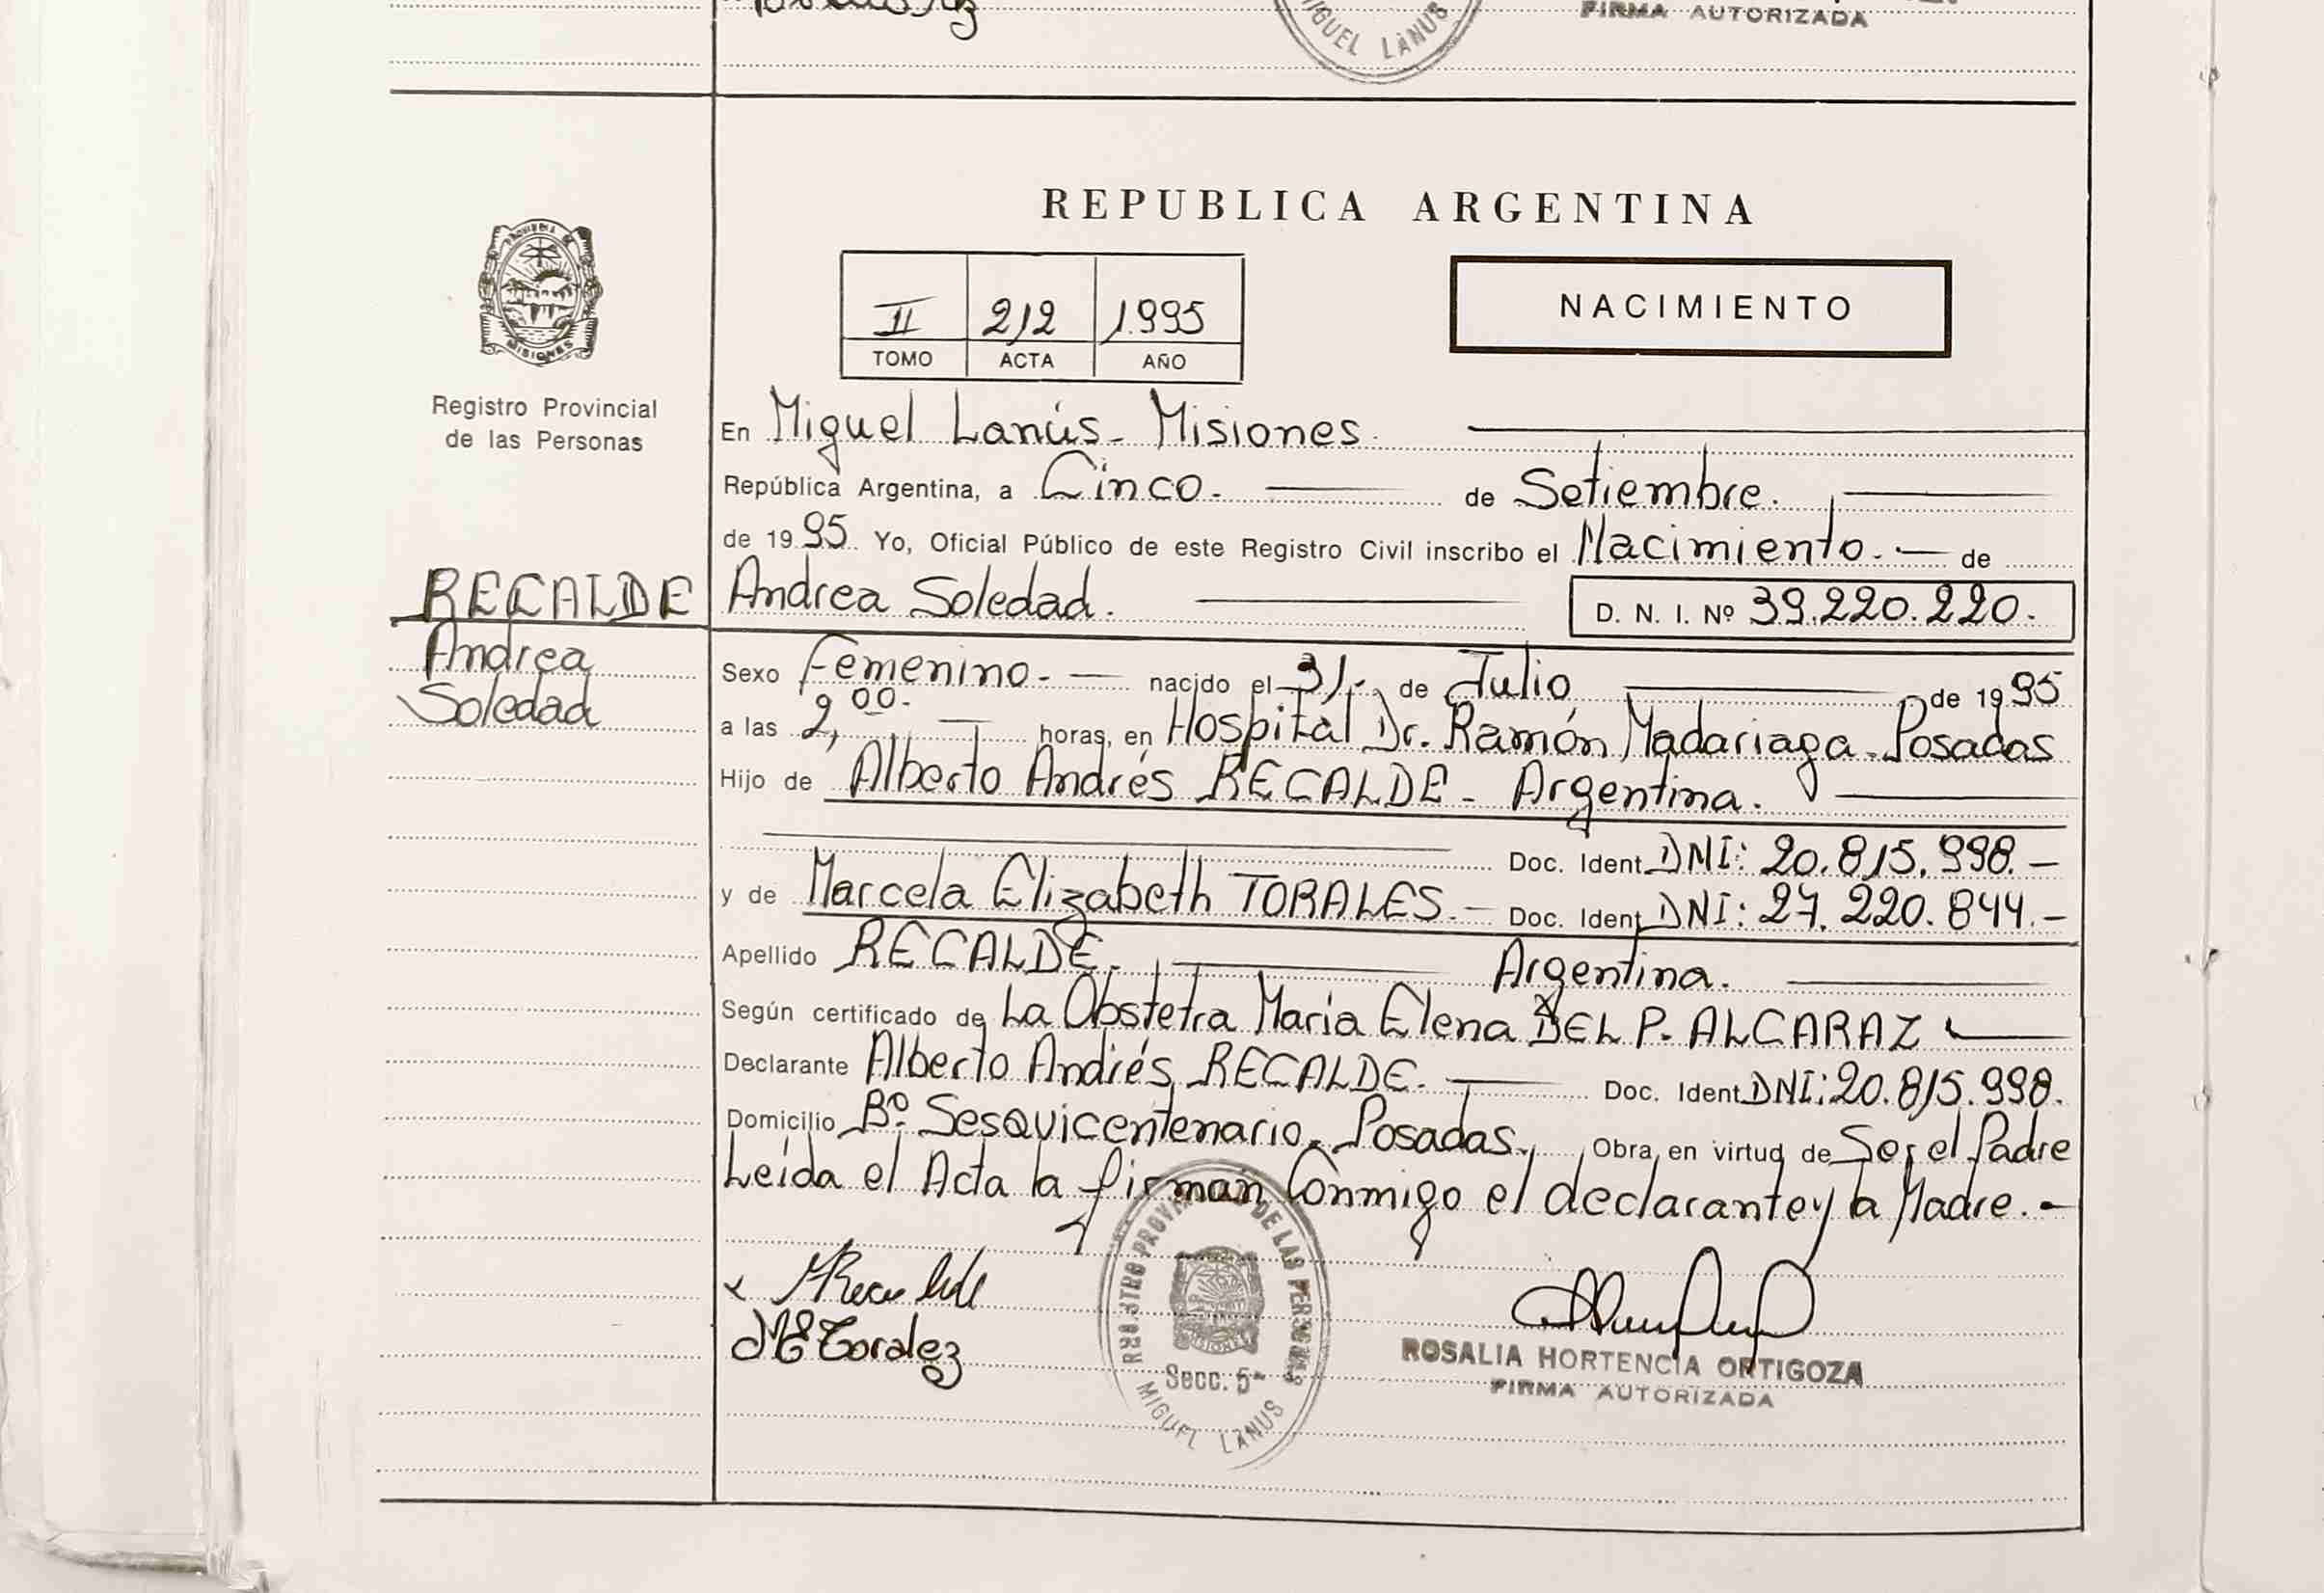 FIRMA AUTORIZADA
MIGUEL LANUS
REPUBLICA ARGENTINA
II 212 1.995
TOMO ACTA AÑO
NACIMIENTO
MISIONES
Registro Provincial
de las Personas
En Miguel Lanús - Misiones.
República Argentina, a Cinco. de Setiembre.
de 1995. Yo, Oficial Público de este Registro Civil inscribo el Nacimiento. - de
RECALDE
Andrea
Soledad
Andrea Soledad. D. N. I. Nº 39.220.220.
Sexo Femenino. - nacido el 31. de Julio de 1995
a las 2,00. horas, en Hospital Dr. Ramón Madariaga - Posadas
Hijo de Alberto Andrés RECALDE - Argentina.
Doc. Ident. DNI: 20.815.998. -
y de Marcela Elizabeth TORALES. - Doc. Ident. DNI: 27.220.844. -
Apellido RECALDE. Argentina.
Según certificado de La Obstetra Maria Elena DEL P. ALCARAZ
Declarante Alberto Andrés RECALDE. Doc. Ident. DNI: 20.815.998.
Domicilio Bº. Sesquicentenario. Posadas. Obra en virtud de Ser el Padre
Leída el Acta la firman Conmigo el declarante y la Madre. -
x ARecalde
ME Toralez
REGISTRO PROVINCIAL DE LAS PERSONAS
Secc. 5ª
MIGUEL LANUS
ROSALIA HORTENCIA ORTIGOZA
FIRMA AUTORIZADA